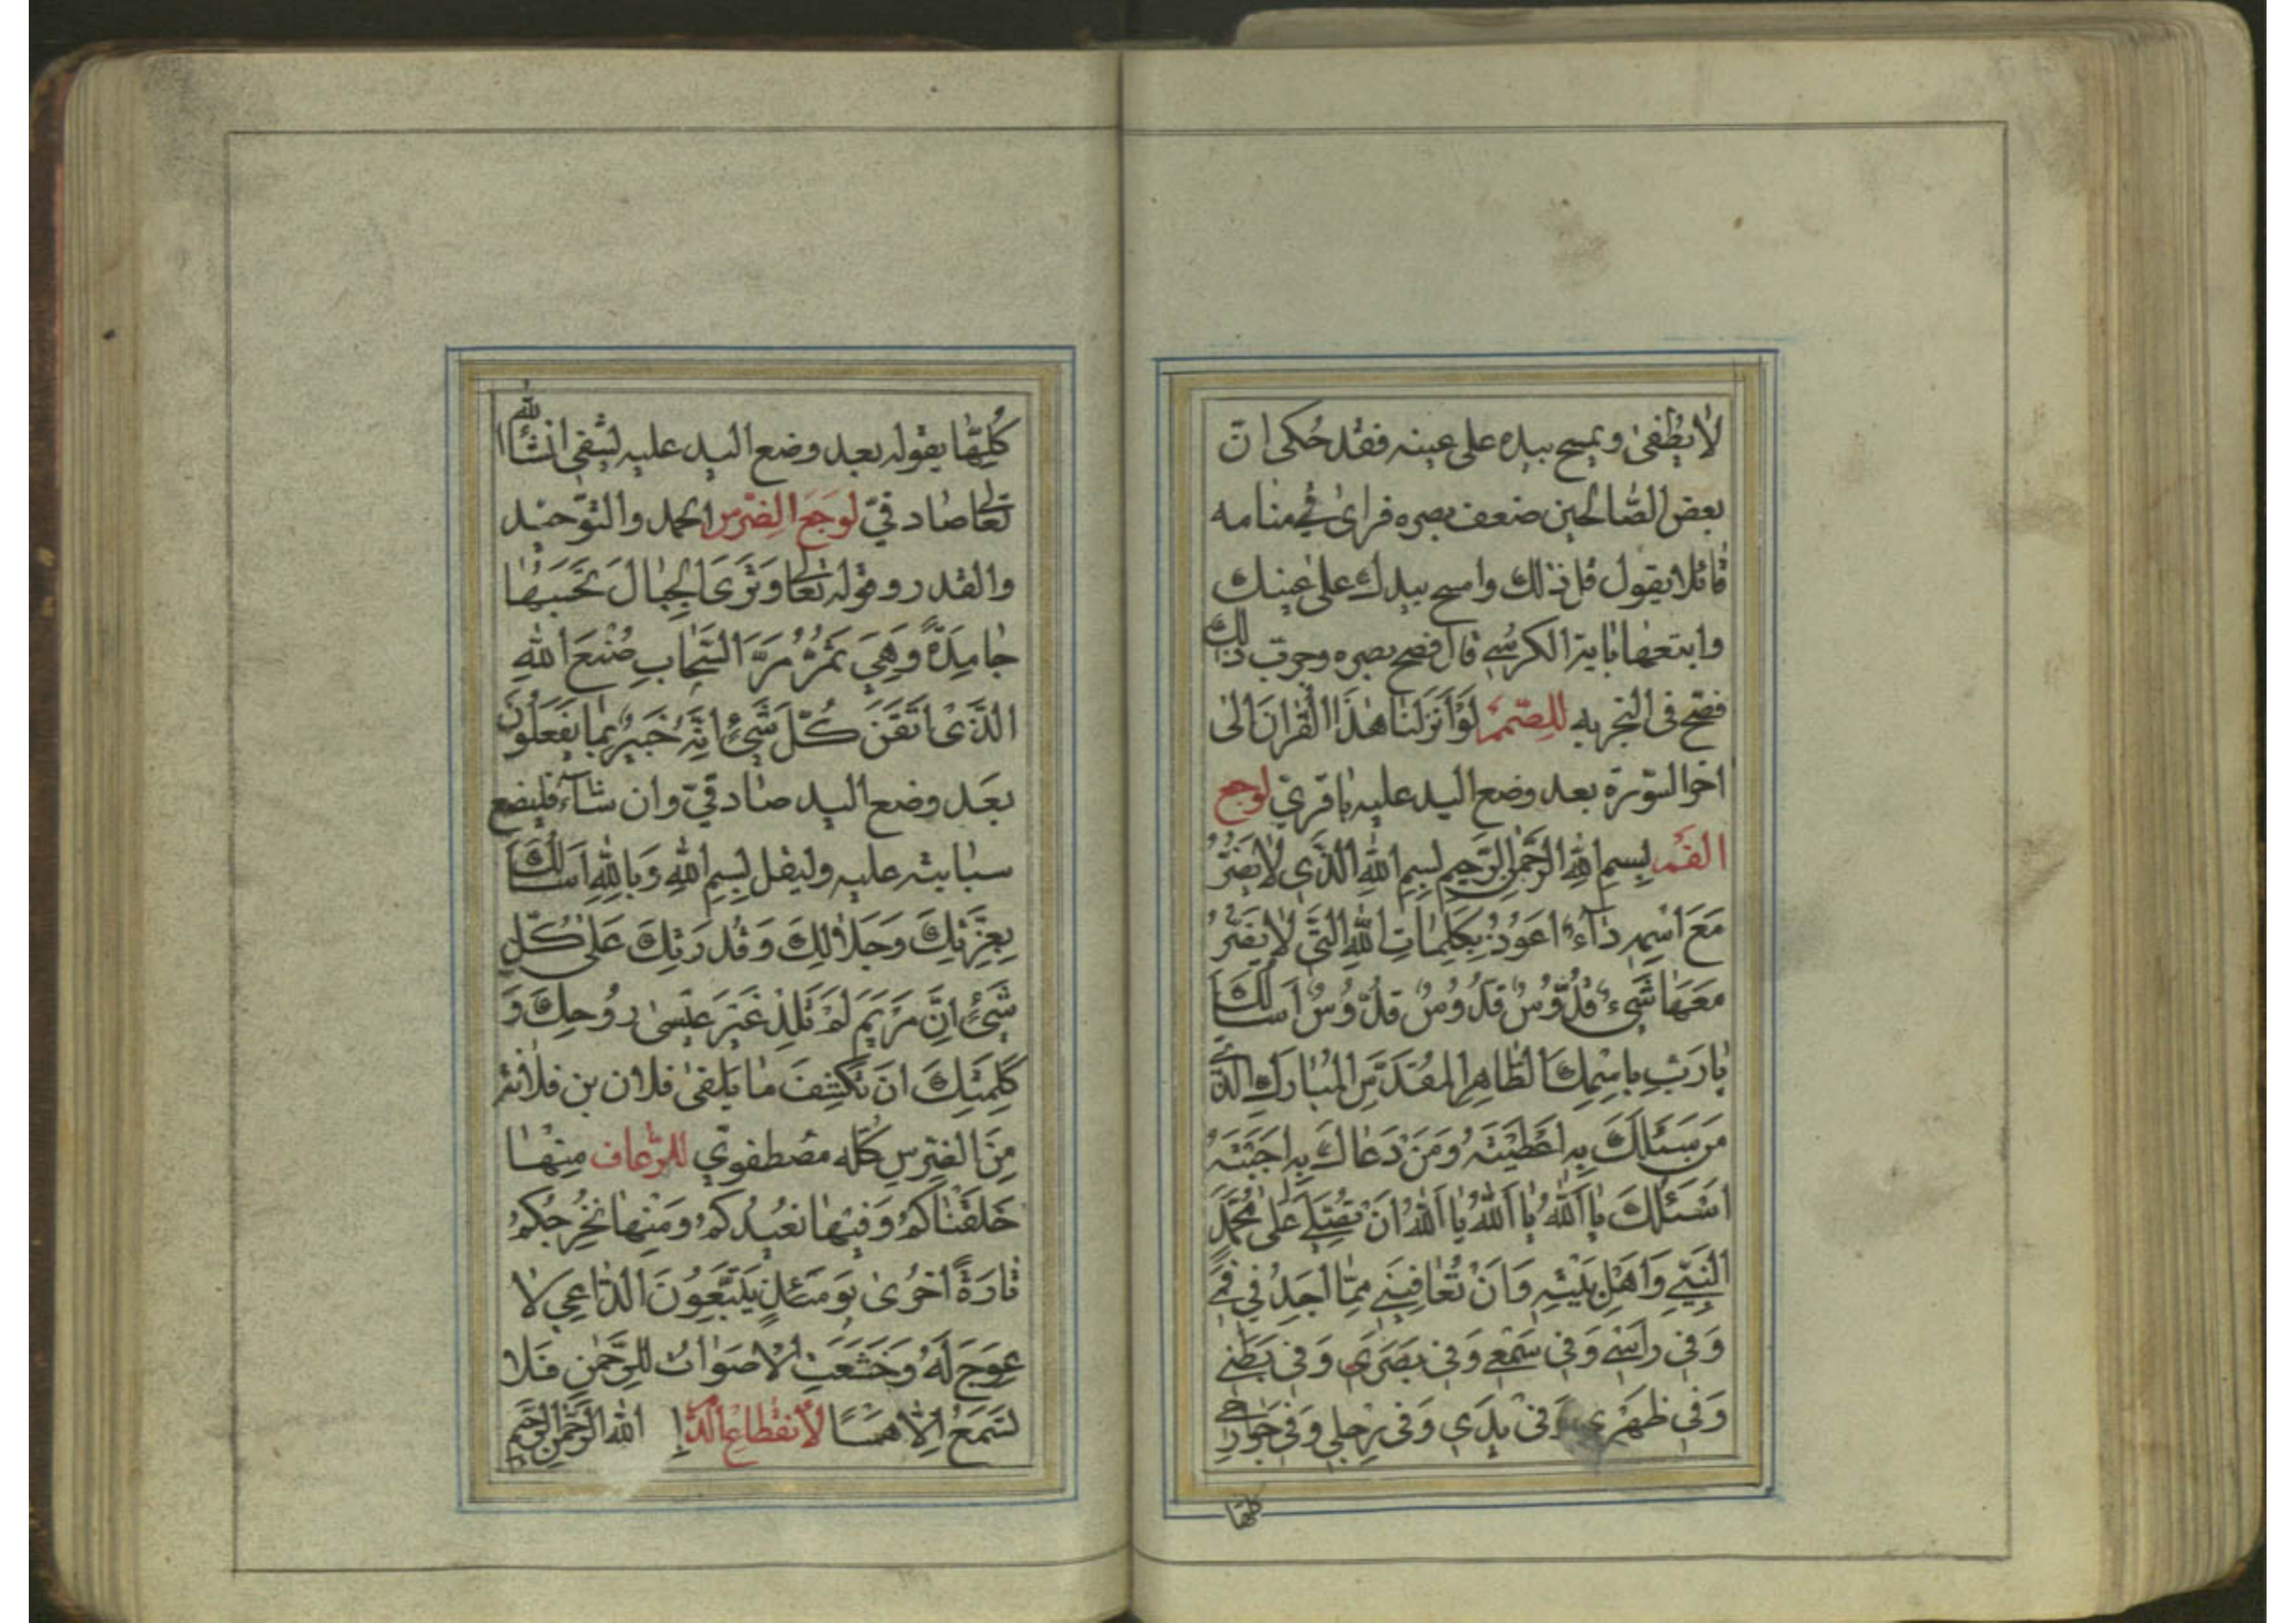 لا يطفى ويمسح بيده على عينه فقد حكى انّ
بعض الصّالحين ضعف بصره فراى في منامه
قائلا يقول قل ذلك وامسح بيدك على عينيك
وابتعها باية الكرسي قال فصح بصره وجرب ذلك
فصّح في التجربه للصّمم لَوْ اَنْزَلْنا هذَا الْقُرْانَ الى
اخر السّورة بعد وضع اليد عليه باقريّ لوجع
الفم بِسمِ اللهِ الرّحمنِ الرّحيمِ بِسمِ اللهِ الَّذي لا يَضُرُّ
مَعَ اسْمِهِ داءٌ اَعوُذُ بِكَلِماتِ اللهِ الَّتي لا يَضُرُّ
مَعَها شَيءٌ قُدُّوسٌ قُدُّوسٌ قُدُّوسٌ اَسالُكَ
يا رَبِّ بِاسْمِكَ الطّاهِرِ المُقَدَّسِ المُبارَكِ الَّذي
مَن سَئَلَكَ بِهِ اَعْطَيْتَهُ وَمَنْ دَعاكَ بِهِ اَجَبْتَهُ
اَسْئَلُكَ يا اَللهُ يا اَللهُ يا اَللهُ اَنْ تُصَلِّيَ عَلى مُحَمَّدٍ
النَّبِيِّ وَاَهْلِ بَيْتِهِ وَاَنْ تُعافِيَني مِمّا اَجِدُ في فَمي
وَفي رَاسي وَفي سَمْعي وَفي بَصَري وَفي بَطْني
وَفي ظَهْري وَفي يَدي وَفي رِجلي وَفي جَوارِحي
كلّها
كُلِّها يقوله بعد وضع اليد عليه ليشفى انشاء الله
تعالى صادقيّ لوجع الضّرس الحمد والتّوحيد
والقدر وقوله تعالى وَتَرَى الْجِبالَ تَحْسَبُها
جامِدَةً وَهِيَ تَمُرُّ مَرَّ السَّحابِ صُنْعَ اللهِ
الَّذي اَتْقَنَ كُلَّ شَيْءٍ اِنَّهُ خَبيرٌ بِما تَفْعَلُونَ
بعد وضع اليد صادقيّ وان شاء فليضع
سبابته عليه وليقل بِسمِ اللهِ وَبِاللهِ اَسالُكَ
بِعِزَّتِكَ وَجَلالِكَ وَقُدرَتِكَ عَلى كُلِّ
شَيْءٍ اِنَّ مَرْيَمَ لَمْ تَلِدْ غَيْرَ عيسى رُوحِكَ وَ
كَلِمَتِكَ اَن تَكْشِفَ ما يَلقى فلان بن فلانة
مِنَ الضِّرسِ كُلّه مصطفويّ للرّعاف مِنْها
خَلَقْناكُمْ وَفيها نُعيدُكُمْ وَمِنْها نُخْرِجُكُمْ
تارَةً اُخْرى يَومَئِذٍ يَتَّبِعُونَ الدّاعِيَ لا
عِوَجَ لَهُ وَخَشَعَتِ الاَصواتُ لِلرَّحمنِ فَلا
تَسْمَعُ اِلّا هَمْسًا لأنقطاع الدّم الله الرّحمن الرّحيم